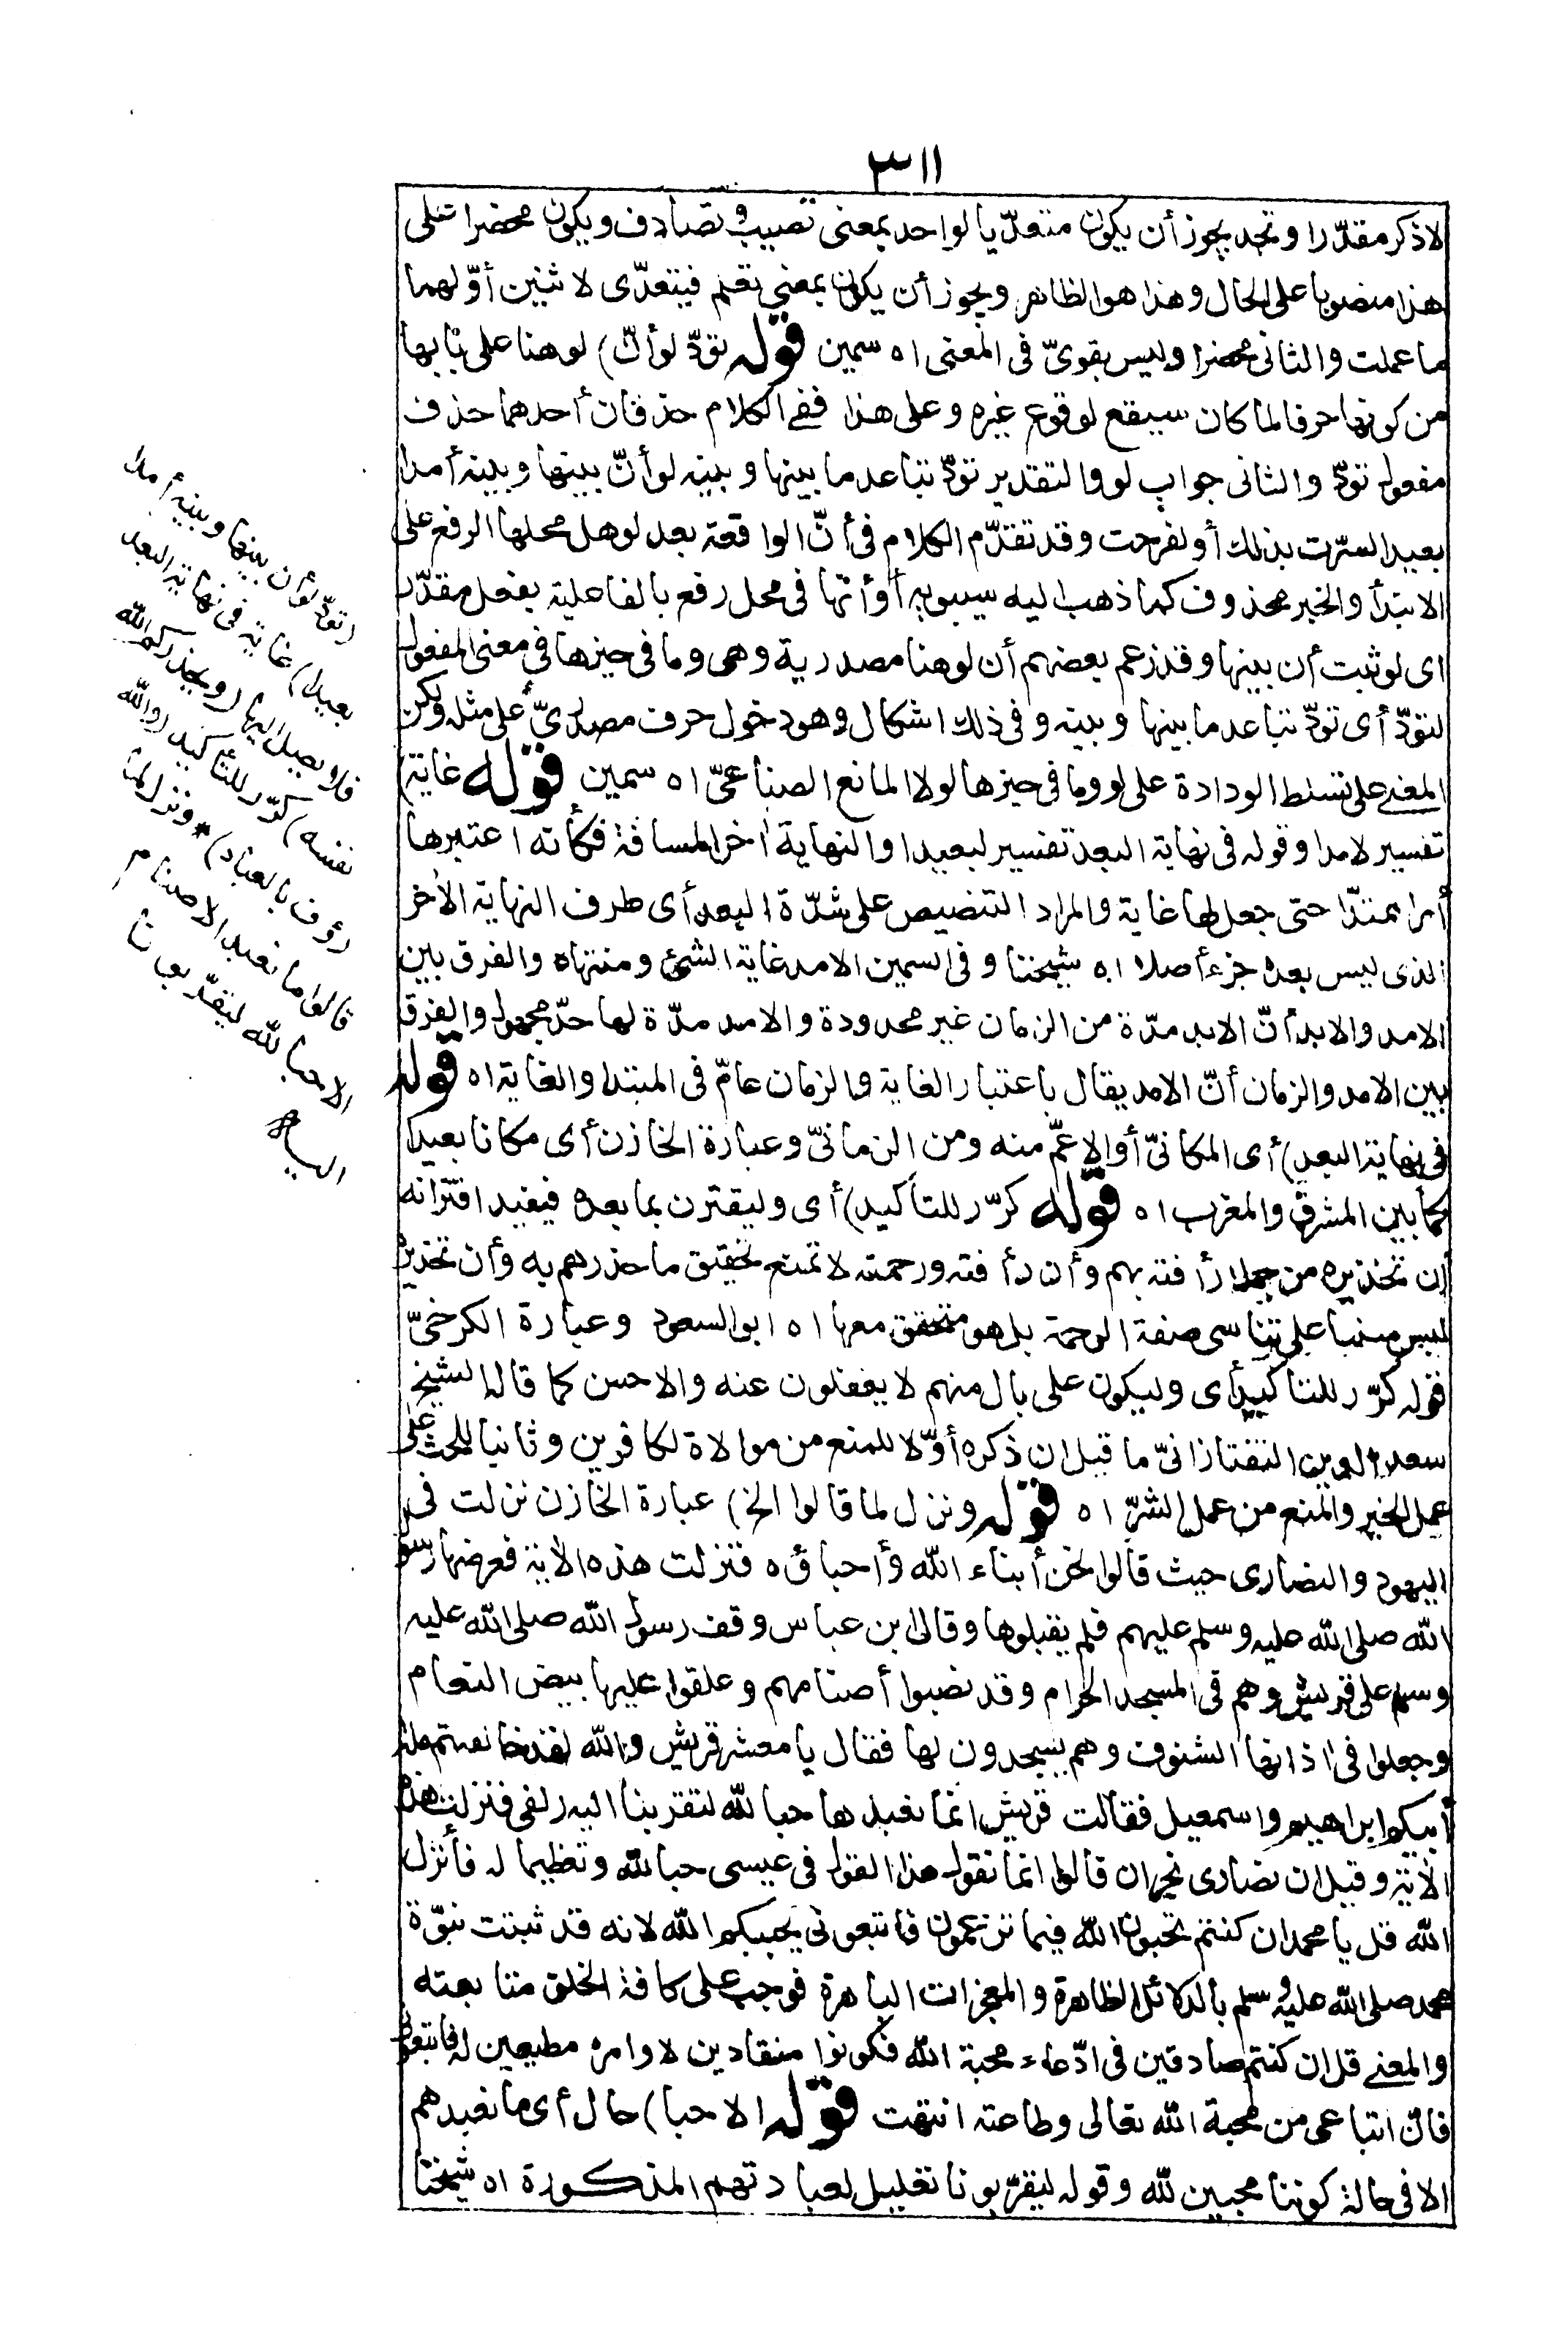 ٣١١
لاذكر مقدّرا وتجد يجوز أن يكون متعدّيا لواحد بمعنى تصيب وتصادف ويكون محضرا على
هذا منصوبا على الحال وهذا هو الظاهر ويجوز أن يكون بمعنى تعلم فيتعدّى لاثنين أوّلهما
ما عملت والثانى محضرا وليس بقوىّ فى المعنى اه سمين قوله تودّ لو أنّ) لو هنا على بابها
من كونها حرفا لما كان سيقع لوقوع غيره وعلى هذا ففى الكلام حذفان أحدهما حذف
مفعول تودّ والثانى جواب لو والتقدير تودّ تباعد ما بينها وبينه لو أنّ بينها وبينه أمدا
بعيدا لسرّت بذلك أو لفرحت وقد تقدّم الكلام فى أنّ الواقعة بعد لو هل محلها الرفع على
الابتدأ والخبر محذوف كما ذهب اليه سيبويه أو أنها فى محل رفع بالفاعلية بفعل مقدّر
اى لو ثبت أن بينها وقد زعم بعضهم أن لو هنا مصدرية وهى وما فى حيزها فى معنى المفعول
لتودّ أى تودّ تباعد ما بينها وبينه وفى ذلك اشكال وهو دخول حرف مصدرىّ على مثله ولكن
المعنى على تسلط الودادة على لو وما فى حيزها لولا المانع الصناعىّ اه سمين قوله غاية)
تفسير لامدا وقوله فى نهاية البعد تفسير لبعيدا والنهاية اخر المسافة فكأنه اعتبرها
أمرا ممتدّا حتى جعل لها غاية والمراد التنصيص على شدّة البعد أى طرف النهاية الأخر
الذى ليس بعده جزء أصلا اه شيخنا وفى السمين الامد غاية الشئ ومنتهاه والفرق بين
الامد والابد أنّ الابد مدّة من الزمان غير محدودة والامد مدّة لها حدّ مجهول والفرق
بين الامد والزمان أنّ الامد يقال باعتبار الغاية والزمان عامّ فى المبتدا والغاية اه قوله
فى نهاية البعد) أى المكانىّ أو الاعمّ منه ومن الزمانىّ وعبارة الخازن أى مكانا بعيدا
كما بين المشرق والمغرب اه قوله كرّر للتأكيد) أى وليقترن بما بعده فيفيد اقترانه
أن تحذيره من جملة رأفته بهم وأن رأفته ورحمته لا تمنع تحقيق ما حذرهم به وأن تحذيره
ليس مبنيا على تناسى صفة الرحمة بل هو متحقق معها اه ابو السعود وعبارة الكرخىّ
قوله كرّر للتأكيد أى وليكون على بال منهم لا يغفلون عنه والاحسن كما قاله الشيخ
سعد الدين التفتازانىّ ما قيل ان ذكره أوّلا للمنع من موالاة لكافرين وثانيا للحث على
عمل الخير والمنع من عمل الشرّ اه قوله ونزل لما قالوا الخ) عبارة الخازن نزلت فى
اليهود والنصارى حيث قالوا نحن أبناء الله وأحباؤه فنزلت هذه الأية فعرضها رسول
الله صلى الله عليه وسلم عليهم فلم يقبلوها وقال ابن عباس وقف رسول الله صلى الله عليه
وسلم على قريش وهم فى المسجد الحرام وقد نصبوا أصنامهم وعلقوا عليها بيض النعام
وجعلوا فى اذانها الشنوف وهم يسجدون لها فقال يا معشر قريش والله لقد خالفتم ملة
أبيكم ابراهيم واسمعيل فقالت قريش انما نعبدها حبا لله لتقربنا اليه زلفى فنزلت هذه
الأية وقيل ان نصارى نجران قالوا انما نقول هذا القول فى عيسى حبا لله وتعظيما له فأنزل
الله قل يا محمد ان كنتم تحبون الله فيما تزعمون فاتبعونى يحببكم الله لانه قد ثبتت نبوّة
محمد صلى الله عليه وسلم بالدلائل الظاهرة والمعجزات الباهرة فوجب على كافة الخلق متابعته
والمعنى قل ان كنتم صادقين فى ادّعاء محبة الله فكونوا منقادين لاوامره مطيعين له فاتبعونى
فانّ اتباعى من محبة الله تعالى وطاعته انتهت قوله الا حبا) حال أى ما نعبدهم
الا فى حالة كوننا محبين لله وقوله ليقرّبونا تعليل لعبادتهم المذكورة اه شيخنا
(تودّ لو أن بينها وبينه أمدا
بعيدا) غاية فى نهاية البعد
فلا يصل اليها (ويحذركم الله
نفسه) كرّر للتأكيد (والله
رؤف بالعباد) * ونزل لما
قالوا ما نعبد الاصنام
الا حبا لله ليقرّبونا
اليه